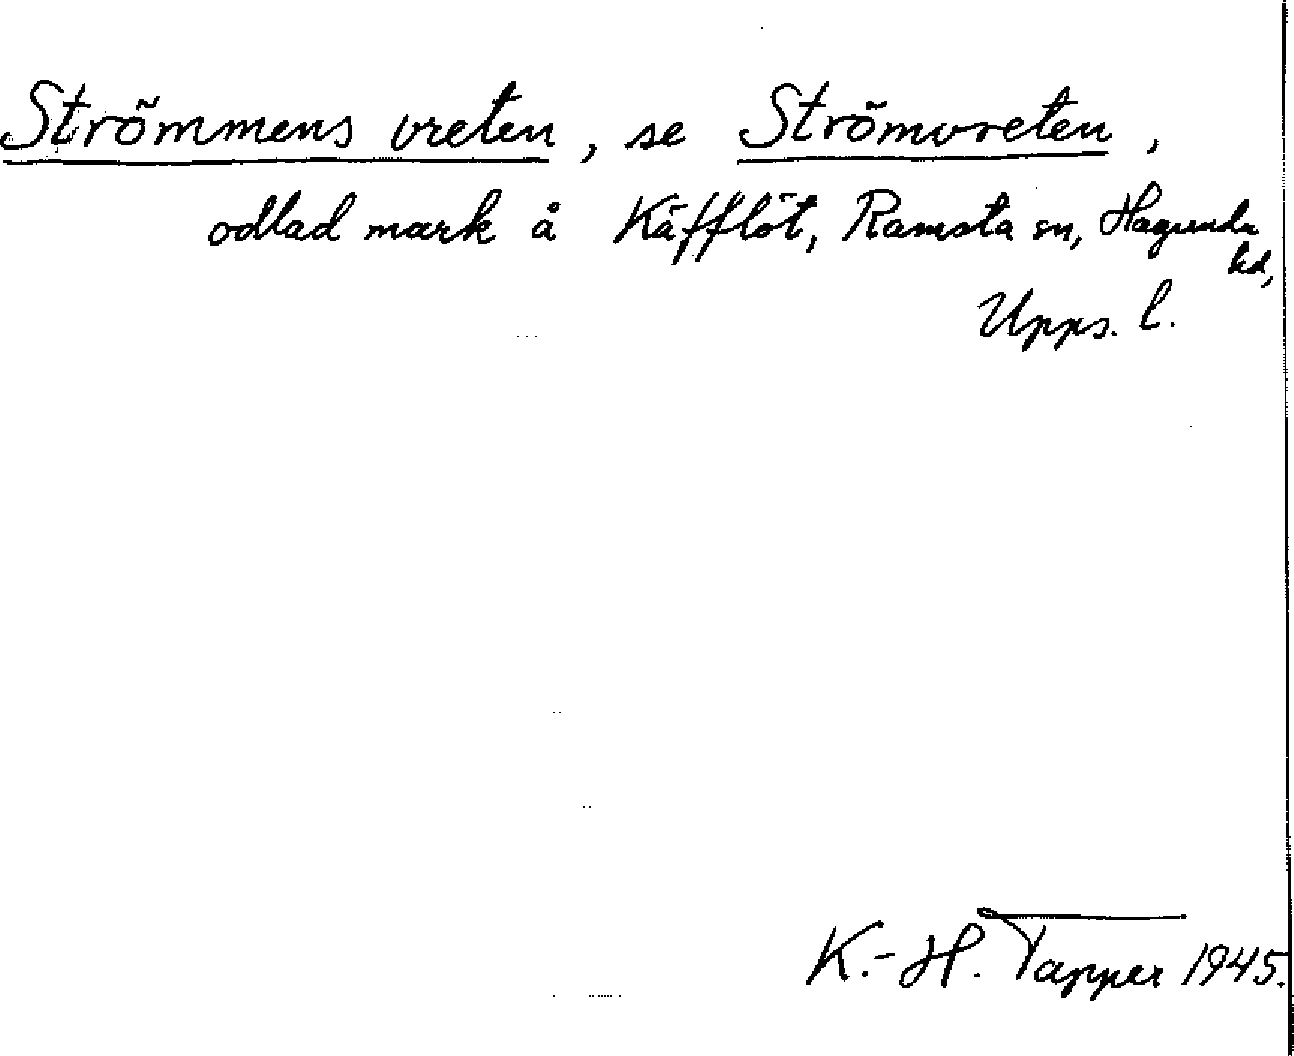 Strömmens vreten, se Strömvreten,
odlad mark å Käfflöt, Ramsta sn, Hagunda
hd,
Upps. l.
K.-H. Tapper 1945.